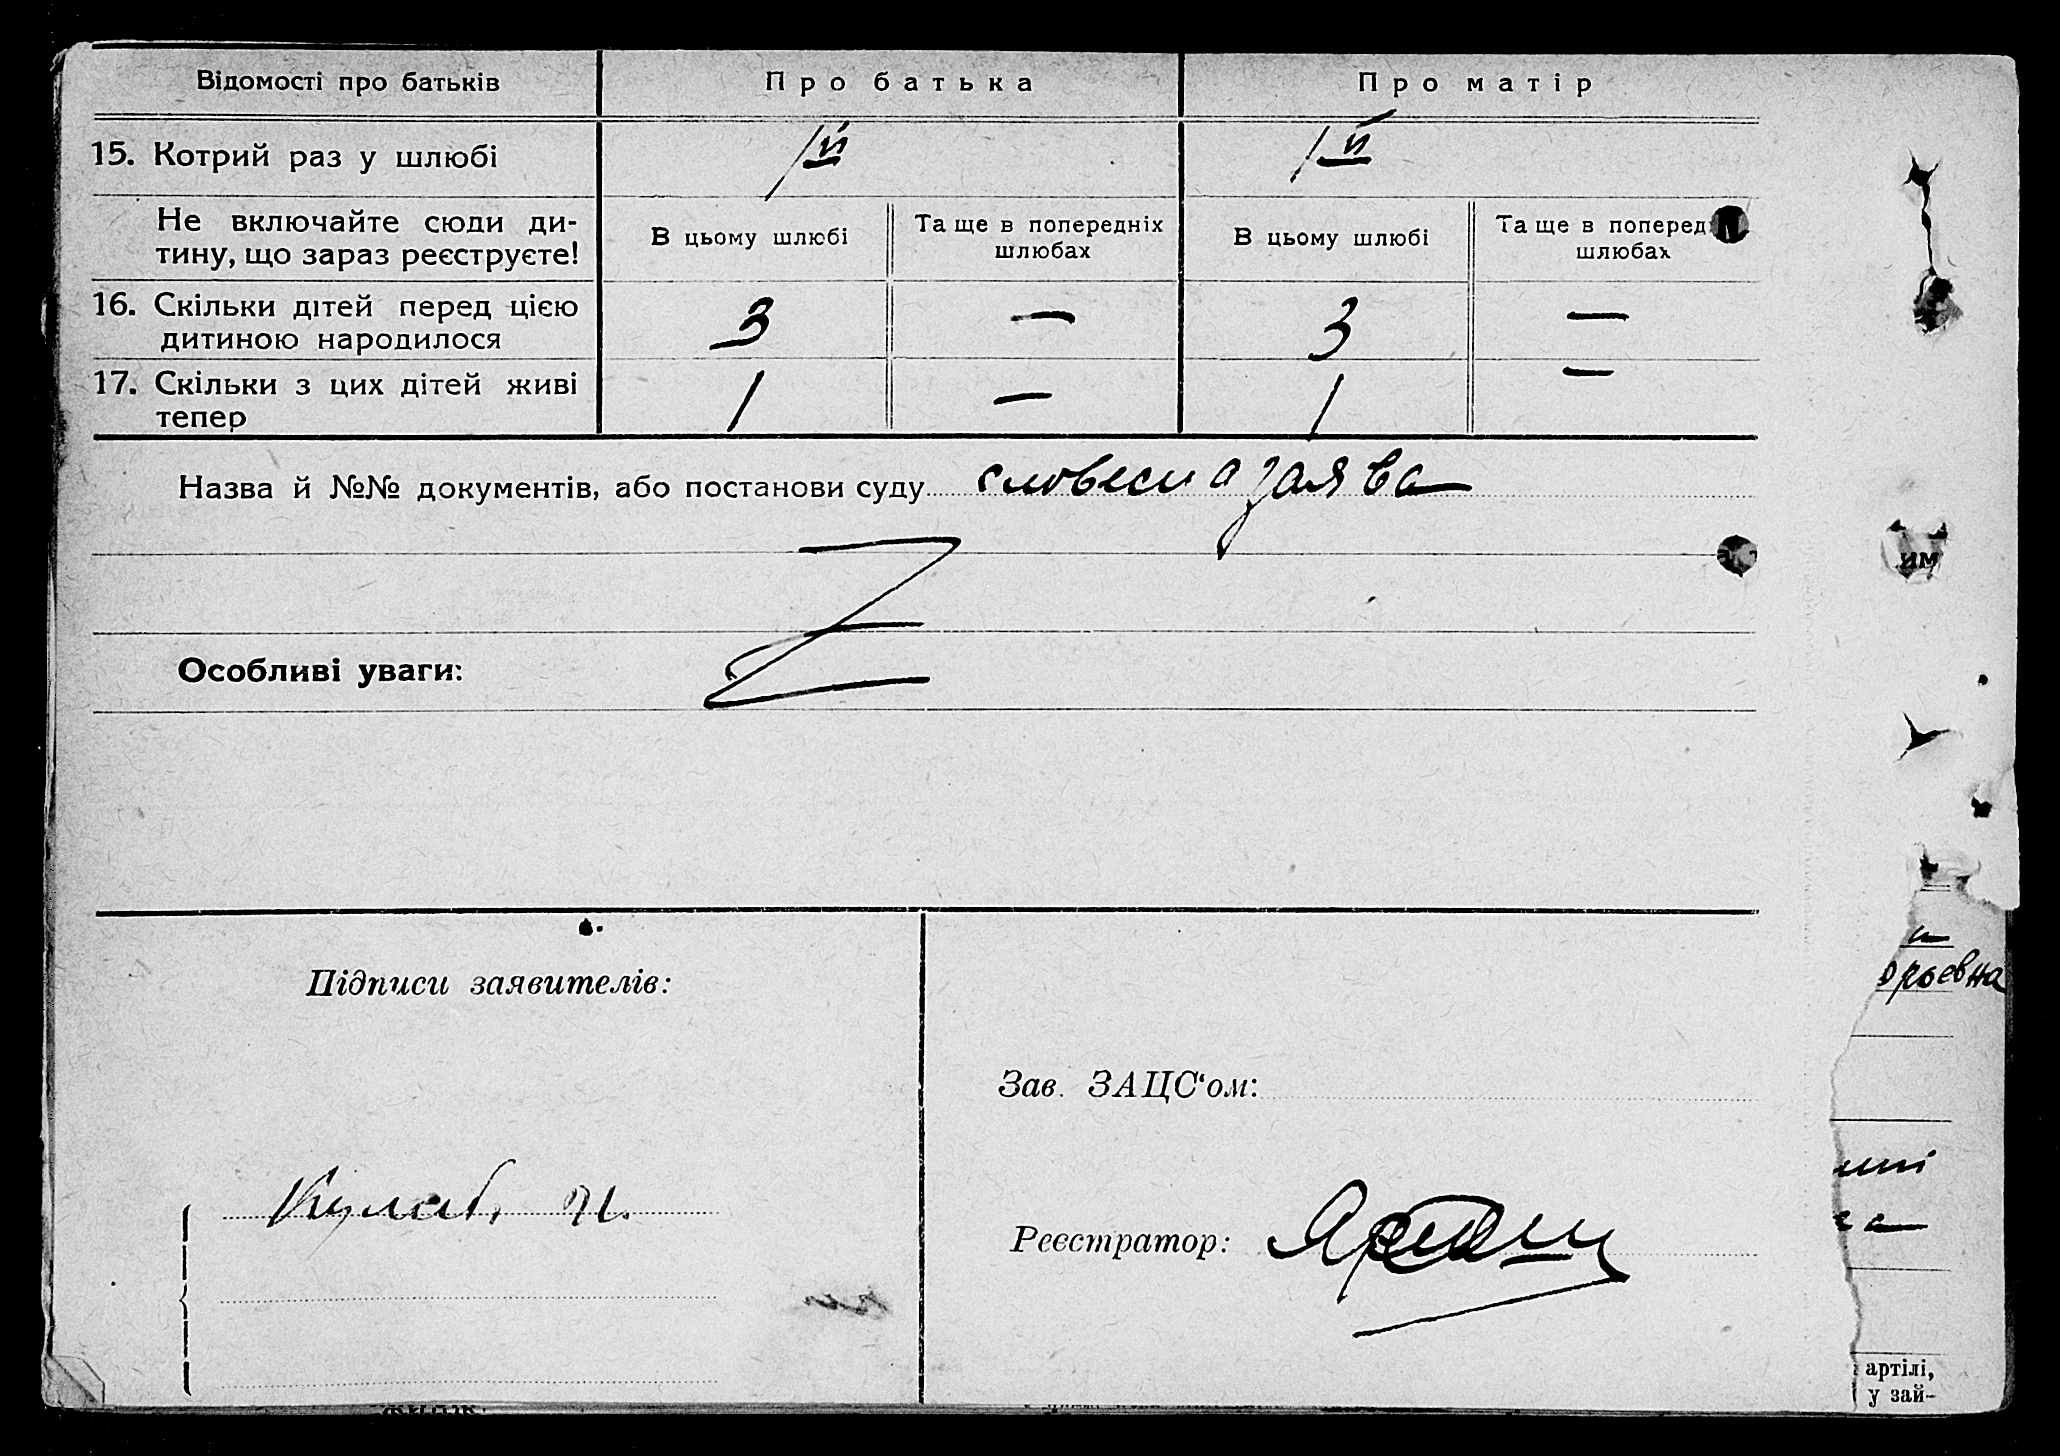 Відомості про батьків Про батька Про матір
15. Котрий раз у шлюбі 1й 1й
Не включайте сюди ди-
тину, що зараз реєструєте!
В цьому шлюбі
Та ще в попередніх
шлюбах
В цьому шлюбі
Та ще в поперед
шлюбах
16. Скільки дітей перед цією
дитиною народилося
3 — 3 —
17. Скільки з цих дітей живі
тепер
1 — 1 —
Назва й №№ документів, або постанови суду словесна заява
Особливі уваги:
Підписи заявителів:
Зав. ЗАЦС‘ом:
Реєстратор:
им
артілі,
у зай-